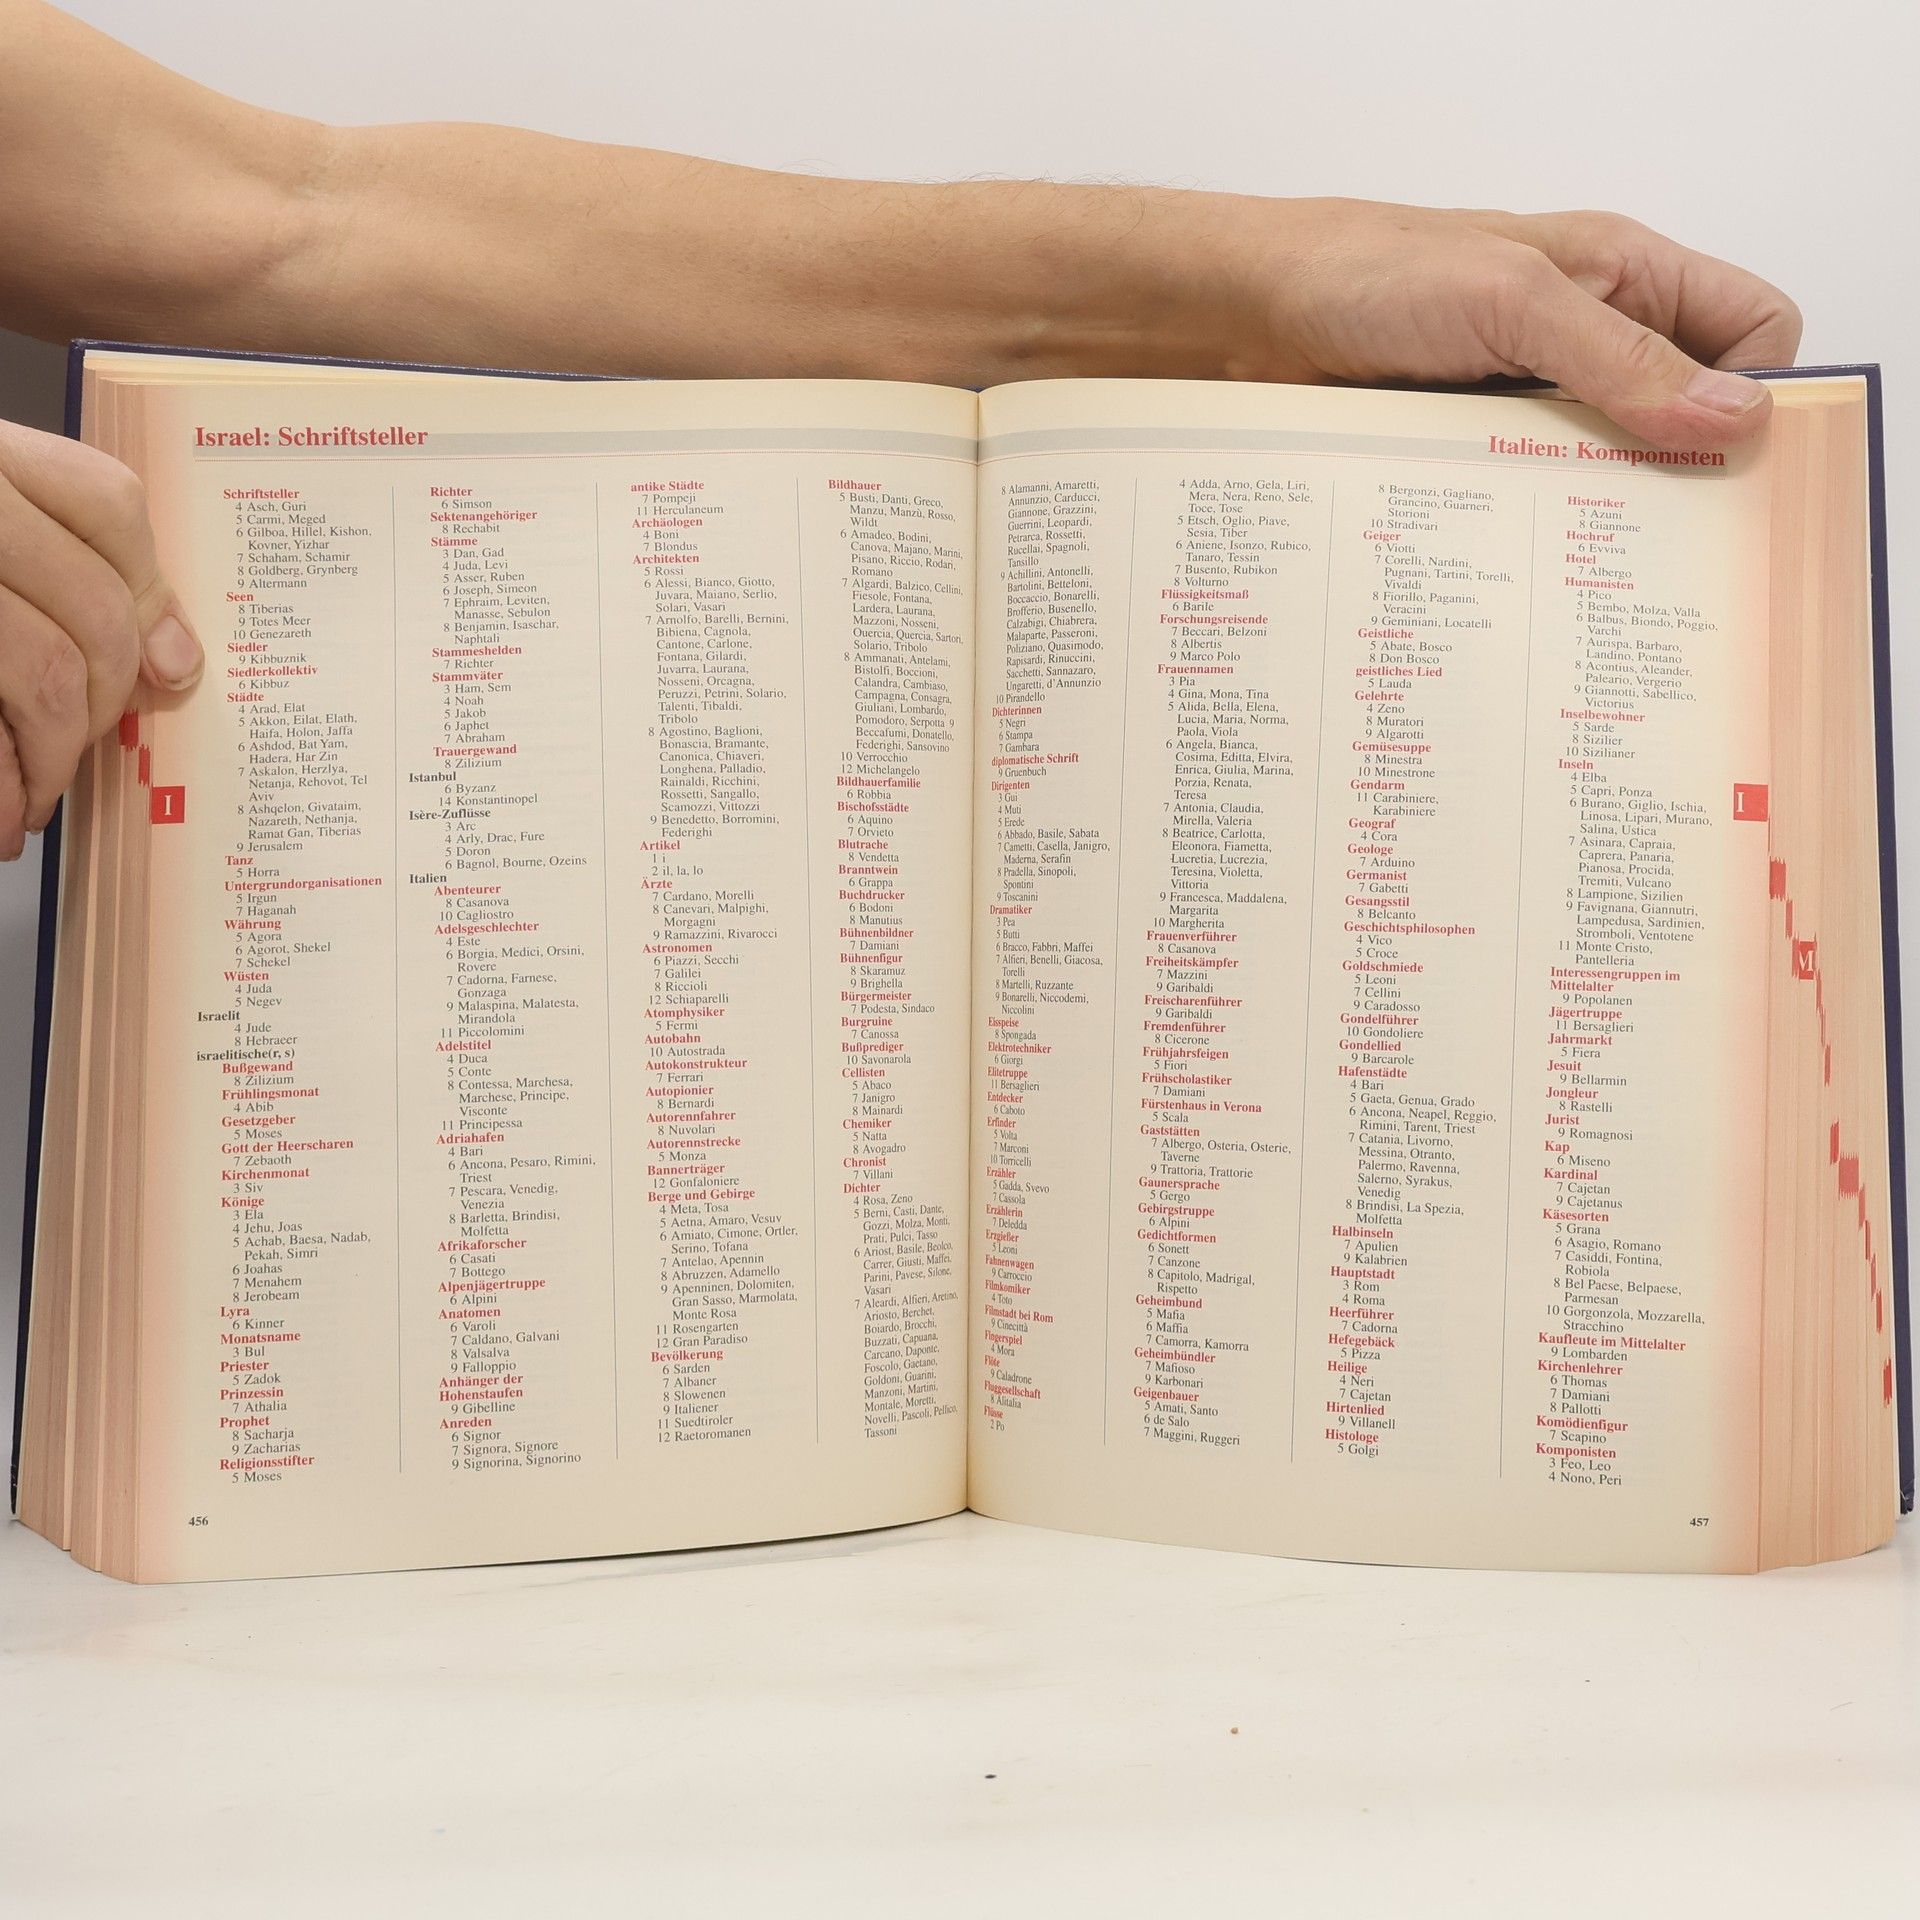 Israel: Schriftsteller
Schriftsteller
4 Asch, Guri
5 Carmi, Meged
6 Gilboa, Hillel, Kishon,
Kovner, Yizhar
7 Schaham, Schamir
8 Goldberg, Grynberg
9 Altermann
Seen
8 Tiberias
9 Totes Meer
10 Genezareth
Siedler
9 Kibbuznik
Siedlerkollektiv
6 Kibbuz
Städte
4 Arad, Elat
5 Akkon, Eilat, Elath,
Haifa, Holon, Jaffa
6 Ashdod, Bat Yam,
Hadera, Har Zin
7 Askalon, Herzlya,
Netanja, Rehovot, Tel
Aviv
8 Ashqelon, Givataim,
Nazareth, Nethanja,
Ramat Gan, Tiberias
9 Jerusalem
Tanz
5 Horra
Untergrundorganisationen
5 Irgun
7 Haganah
Währung
5 Agora
6 Agorot, Shekel
7 Schekel
Wüsten
4 Juda
5 Negev
Israelit
4 Jude
8 Hebraeer
israelitische(r, s)
Bußgewand
8 Zilizium
Frühlingsmonat
4 Abib
Gesetzgeber
5 Moses
Gott der Heerscharen
7 Zebaoth
Kirchenmonat
3 Siv
Könige
3 Ela
4 Jehu, Joas
5 Achab, Baesa, Nadab,
Pekah, Simri
6 Joahas
7 Menahem
8 Jerobeam
Lyra
6 Kinner
Monatsname
3 Bul
Priester
5 Zadok
Prinzessin
7 Athalia
Prophet
8 Sacharja
9 Zacharias
Religionsstifter
5 Moses
Richter
6 Simson
Sektenangehöriger
8 Rechabit
Stämme
3 Dan, Gad
4 Juda, Levi
5 Asser, Ruben
6 Joseph, Simeon
7 Ephraim, Leviten,
Manasse, Sebulon
8 Benjamin, Isaschar,
Naphtali
Stammeshelden
7 Richter
Stammväter
3 Ham, Sem
4 Noah
5 Jakob
6 Japhet
7 Abraham
Trauergewand
8 Zilizium
Istanbul
6 Byzanz
14 Konstantinopel
Isère-Zuflüsse
3 Arc
4 Arly, Drac, Fure
5 Doron
6 Bagnol, Bourne, Ozeins
Italien
Abenteurer
8 Casanova
10 Cagliostro
Adelsgeschlechter
4 Este
6 Borgia, Medici, Orsini,
Rovere
7 Cadorna, Farnese,
Gonzaga
9 Malaspina, Malatesta,
Mirandola
11 Piccolomini
Adelstitel
4 Duca
5 Conte
8 Contessa, Marchesa,
Marchese, Principe,
Visconte
11 Principessa
Adriahafen
4 Bari
6 Ancona, Pesaro, Rimini,
Triest
7 Pescara, Venedig,
Venezia
8 Barletta, Brindisi,
Molfetta
Afrikaforscher
6 Casati
7 Bottego
Alpenjägertruppe
6 Alpini
Anatomen
6 Varoli
7 Caldano, Galvani
8 Valsalva
9 Falloppio
Anhänger der
Hohenstaufen
9 Gibelline
Anreden
6 Signor
7 Signora, Signore
9 Signorina, Signorino
antike Städte
7 Pompeji
11 Herculaneum
Archäologen
4 Boni
7 Blondus
Architekten
5 Rossi
6 Alessi, Bianco, Giotto,
Juvara, Maiano, Serlio,
Solari, Vasari
7 Arnolfo, Barelli, Bernini,
Bibiena, Cagnola,
Cantone, Carlone,
Fontana, Gilardi,
Juvarra, Laurana,
Nosseni, Orcagna,
Peruzzi, Petrini, Solario,
Talenti, Tibaldi,
Tribolo
8 Agostino, Baglioni,
Bonascia, Bramante,
Canonica, Chiaveri,
Longhena, Palladio,
Rainaldi, Ricchini,
Rossetti, Sangallo,
Scamozzi, Vittozzi
9 Benedetto, Borromini,
Federighi
Artikel
1 i
2 il, la, lo
Ärzte
7 Cardano, Morelli
8 Canevari, Malpighi,
Morgagni
9 Ramazzini, Rivarocci
Astronomen
6 Piazzi, Secchi
7 Galilei
8 Riccioli
12 Schiaparelli
Atomphysiker
5 Fermi
Autobahn
10 Autostrada
Autokonstrukteur
7 Ferrari
Autopionier
8 Bernardi
Autorennfahrer
8 Nuvolari
Autorennstrecke
5 Monza
Bannerträger
12 Gonfaloniere
Berge und Gebirge
4 Meta, Tosa
5 Aetna, Amaro, Vesuv
6 Amiato, Cimone, Ortler,
Serino, Tofana
7 Antelao, Apennin
8 Abruzzen, Adamello
9 Apenninen, Dolomiten,
Gran Sasso, Marmolata,
Monte Rosa
11 Rosengarten
12 Gran Paradiso
Bevölkerung
6 Sarden
7 Albaner
8 Slowenen
9 Italiener
11 Suedtiroler
12 Raetoromanen
Bildhauer
5 Busti, Danti, Greco,
Manzu, Manzù, Rosso,
Wildt
6 Amadeo, Bodini,
Canova, Majano, Marini,
Pisano, Riccio, Rodari,
Romano
7 Algardi, Balzico, Cellini,
Fiesole, Fontana,
Lardera, Laurana,
Mazzoni, Nosseni,
Quercia, Quercia, Sartori,
Solario, Tribolo
8 Ammanati, Antelami,
Bistolfi, Boccioni,
Calandra, Cambiaso,
Campagna, Consagra,
Giuliani, Lombardo,
Pomodoro, Serpotta 9
Beccafumi, Donatello,
Federighi, Sansovino
10 Verrocchio
12 Michelangelo
Bildhauerfamilie
6 Robbia
Bischofsstädte
6 Aquino
7 Orvieto
Blutrache
8 Vendetta
Branntwein
6 Grappa
Buchdrucker
6 Bodoni
8 Manutius
Bühnenbildner
7 Damiani
Bühnenfigur
8 Skaramuz
9 Brighella
Bürgermeister
7 Podesta, Sindaco
Burgruine
7 Canossa
Bußprediger
10 Savonarola
Cellisten
5 Abaco
7 Janigro
8 Mainardi
Chemiker
5 Natta
8 Avogadro
Chronist
7 Villani
Dichter
4 Rosa, Zeno
5 Berni, Casti, Dante,
Gozzi, Molza, Monti,
Prati, Pulci, Tasso
6 Ariost, Basile, Beolco,
Carrer, Giusti, Maffei,
Parini, Pavese, Silone,
Vasari
7 Aleardi, Alfieri, Aretino,
Ariosto, Berchet,
Boiardo, Brocchi,
Buzzati, Capuana,
Carcano, Daponte,
Foscolo, Gaetano,
Goldoni, Guarini,
Manzoni, Martini,
Montale, Moretti,
Novelli, Pascoli, Pellico,
Tassoni
I
456
Italien: Komponisten
8 Alamanni, Amaretti,
Annunzio, Carducci,
Giannone, Grazzini,
Guerrini, Leopardi,
Petrarca, Rossetti,
Rucellai, Spagnoli,
Tansillo
9 Achillini, Antonelli,
Bartolini, Betteloni,
Boccaccio, Bonarelli,
Brofferio, Busenello,
Calzabigi, Chiabrera,
Malaparte, Passeroni,
Poliziano, Quasimodo,
Rapisardi, Rinuccini,
Sacchetti, Sannazaro,
Ungaretti, d'Annunzio
10 Pirandello
Dichterinnen
5 Negri
6 Stampa
7 Gambara
diplomatische Schrift
9 Gruenbuch
Dirigenten
3 Gui
4 Muti
5 Erede
6 Abbado, Basile, Sabata
7 Cametti, Casella, Janigro,
Maderna, Serafin
8 Pradella, Sinopoli,
Spontini
9 Toscanini
Dramatiker
3 Pea
5 Butti
6 Bracco, Fabbri, Maffei
7 Alfieri, Benelli, Giacosa,
Torelli
8 Martelli, Ruzzante
9 Bonarelli, Niccodemi,
Niccolini
Eisspeise
8 Spongada
Elektrotechniker
6 Giorgi
Elitetruppe
11 Bersaglieri
Entdecker
6 Caboto
Erfinder
5 Volta
7 Marconi
10 Torricelli
Erzähler
5 Gadda, Svevo
7 Cassola
Erzählerin
7 Deledda
Erzgießer
5 Leoni
Fahnenwagen
9 Carroccio
Filmkomiker
4 Toto
Filmstadt bei Rom
9 Cinecittà
Fingerspiel
4 Mora
Flöte
9 Caladrone
Fluggesellschaft
8 Alitalia
Flüsse
2 Po
4 Adda, Arno, Gela, Liri,
Mera, Nera, Reno, Sele,
Toce, Tose
5 Etsch, Oglio, Piave,
Sesia, Tiber
6 Aniene, Isonzo, Rubico,
Tanaro, Tessin
7 Busento, Rubikon
8 Volturno
Flüssigkeitsmaß
6 Barile
Forschungsreisende
7 Beccari, Belzoni
8 Albertis
9 Marco Polo
Frauennamen
3 Pia
4 Gina, Mona, Tina
5 Alida, Bella, Elena,
Lucia, Maria, Norma,
Paola, Viola
6 Angela, Bianca,
Cosima, Editta, Elvira,
Enrica, Giulia, Marina,
Porzia, Renata,
Teresa
7 Antonia, Claudia,
Mirella, Valeria
8 Beatrice, Carlotta,
Eleonora, Fiametta,
Lucretia, Lucrezia,
Teresina, Violetta,
Vittoria
9 Francesca, Maddalena,
Margarita
10 Margherita
Frauenverführer
8 Casanova
Freiheitskämpfer
7 Mazzini
9 Garibaldi
Freischarenführer
9 Garibaldi
Fremdenführer
8 Cicerone
Frühjahrsfeigen
5 Fiori
Frühscholastiker
7 Damiani
Fürstenhaus in Verona
5 Scala
Gaststätten
7 Albergo, Osteria, Osterie,
Taverne
9 Trattoria, Trattorie
Gaunersprache
5 Gergo
Gebirgstruppe
6 Alpini
Gedichtformen
6 Sonett
7 Canzone
8 Capitolo, Madrigal,
Rispetto
Geheimbund
5 Mafia
6 Maffia
7 Camorra, Kamorra
Geheimbündler
7 Mafioso
9 Karbonari
Geigenbauer
5 Amati, Santo
6 de Salo
7 Maggini, Ruggeri
8 Bergonzi, Gagliano,
Grancino, Guarneri,
Storioni
10 Stradivari
Geiger
6 Viotti
7 Corelli, Nardini,
Pugnani, Tartini, Torelli,
Vivaldi
8 Fiorillo, Paganini,
Veracini
9 Geminiani, Locatelli
Geistliche
5 Abate, Bosco
8 Don Bosco
geistliches Lied
5 Lauda
Gelehrte
4 Zeno
8 Muratori
9 Algarotti
Gemüsesuppe
8 Minestra
10 Minestrone
Gendarm
11 Carabiniere,
Karabiniere
Geograf
4 Cora
Geologe
7 Arduino
Germanist
7 Gabetti
Gesangsstil
8 Belcanto
Geschichtsphilosophen
4 Vico
5 Croce
Goldschmiede
5 Leoni
7 Cellini
9 Caradosso
Gondelführer
10 Gondoliere
Gondellied
9 Barcarole
Hafenstädte
4 Bari
5 Gaeta, Genua, Grado
6 Ancona, Neapel, Reggio,
Rimini, Tarent, Triest
7 Catania, Livorno,
Messina, Otranto,
Palermo, Ravenna,
Salerno, Syrakus,
Venedig
8 Brindisi, La Spezia,
Molfetta
Halbinseln
7 Apulien
9 Kalabrien
Hauptstadt
3 Rom
4 Roma
Heerführer
7 Cadorna
Hefegebäck
5 Pizza
Heilige
4 Neri
7 Cajetan
Hirtenlied
9 Villanell
Histologe
5 Golgi
Historiker
5 Azuni
8 Giannone
Hochruf
6 Evviva
Hotel
7 Albergo
Humanisten
4 Pico
5 Bembo, Molza, Valla
6 Balbus, Biondo, Poggio,
Varchi
7 Aurispa, Barbaro,
Landino, Pontano
8 Acontius, Aleander,
Paleario, Vergerio
9 Giannotti, Sabellico,
Victorius
Inselbewohner
5 Sarde
8 Sizilier
10 Sizilianer
Inseln
4 Elba
5 Capri, Ponza
6 Burano, Giglio, Ischia,
Linosa, Lipari, Murano,
Salina, Ustica
7 Asinara, Capraia,
Caprera, Panaria,
Pianosa, Procida,
Tremiti, Vulcano
8 Lampione, Sizilien
9 Favignana, Giannutri,
Lampedusa, Sardinien,
Stromboli, Ventotene
11 Monte Cristo,
Pantelleria
Interessengruppen im
Mittelalter
9 Popolanen
Jägertruppe
11 Bersaglieri
Jahrmarkt
5 Fiera
Jesuit
9 Bellarmin
Jongleur
8 Rastelli
Jurist
9 Romagnosi
Kap
6 Miseno
Kardinal
7 Cajetan
9 Cajetanus
Käsesorten
5 Grana
6 Asagio, Romano
7 Casiddi, Fontina,
Robiola
8 Bel Paese, Belpaese,
Parmesan
10 Gorgonzola, Mozzarella,
Stracchino
Kaufleute im Mittelalter
9 Lombarden
Kirchenlehrer
6 Thomas
7 Damiani
8 Pallotti
Komödienfigur
7 Scapino
Komponisten
3 Feo, Leo
4 Nono, Peri
I
M
457